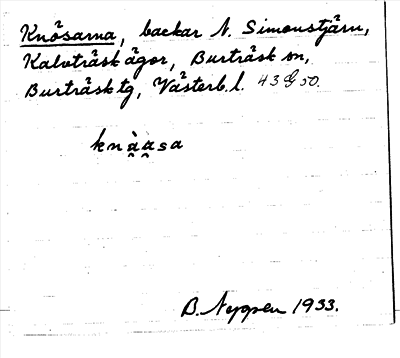 Knösarna, backar N. Simonstjärn,
Kalvträsk ägor, Burträsk sn,
Burträsk tg, Västerb. l. 43 G 50.
knàa̯sa
B. Nyppen 1933.